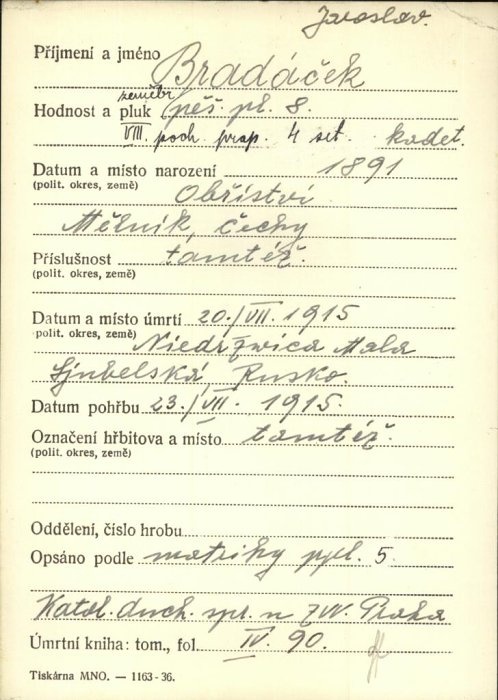 Jaroslav.
Příjmení a jméno Bradáček
Hodnost a pluk zeměbr. pěš. pl. 8.
VIII. poch. prap. 4 set. kadet.
Datum a místo narození 1891
(polit. okres, země) Obříství
Mělník, Čechy
Příslušnost tamtéž.
(polit. okres, země)
Datum a místo úmrtí 20./VII. 1915
polit. okres, země) Niedrzwica Mala
Ljubelská, Rusko.
Datum pohřbu 23./VII. 1915.
Označení hřbitova a místo tamtéž.
(polit. okres, země)
Oddělení, číslo hrobu
Opsáno podle matriky ppl. 5.
Katol. duch. spr. n ZVV. Praha
Úmrtní kniha: tom., fol. IV. 90.
Tiskárna MNO. — 1163-36.